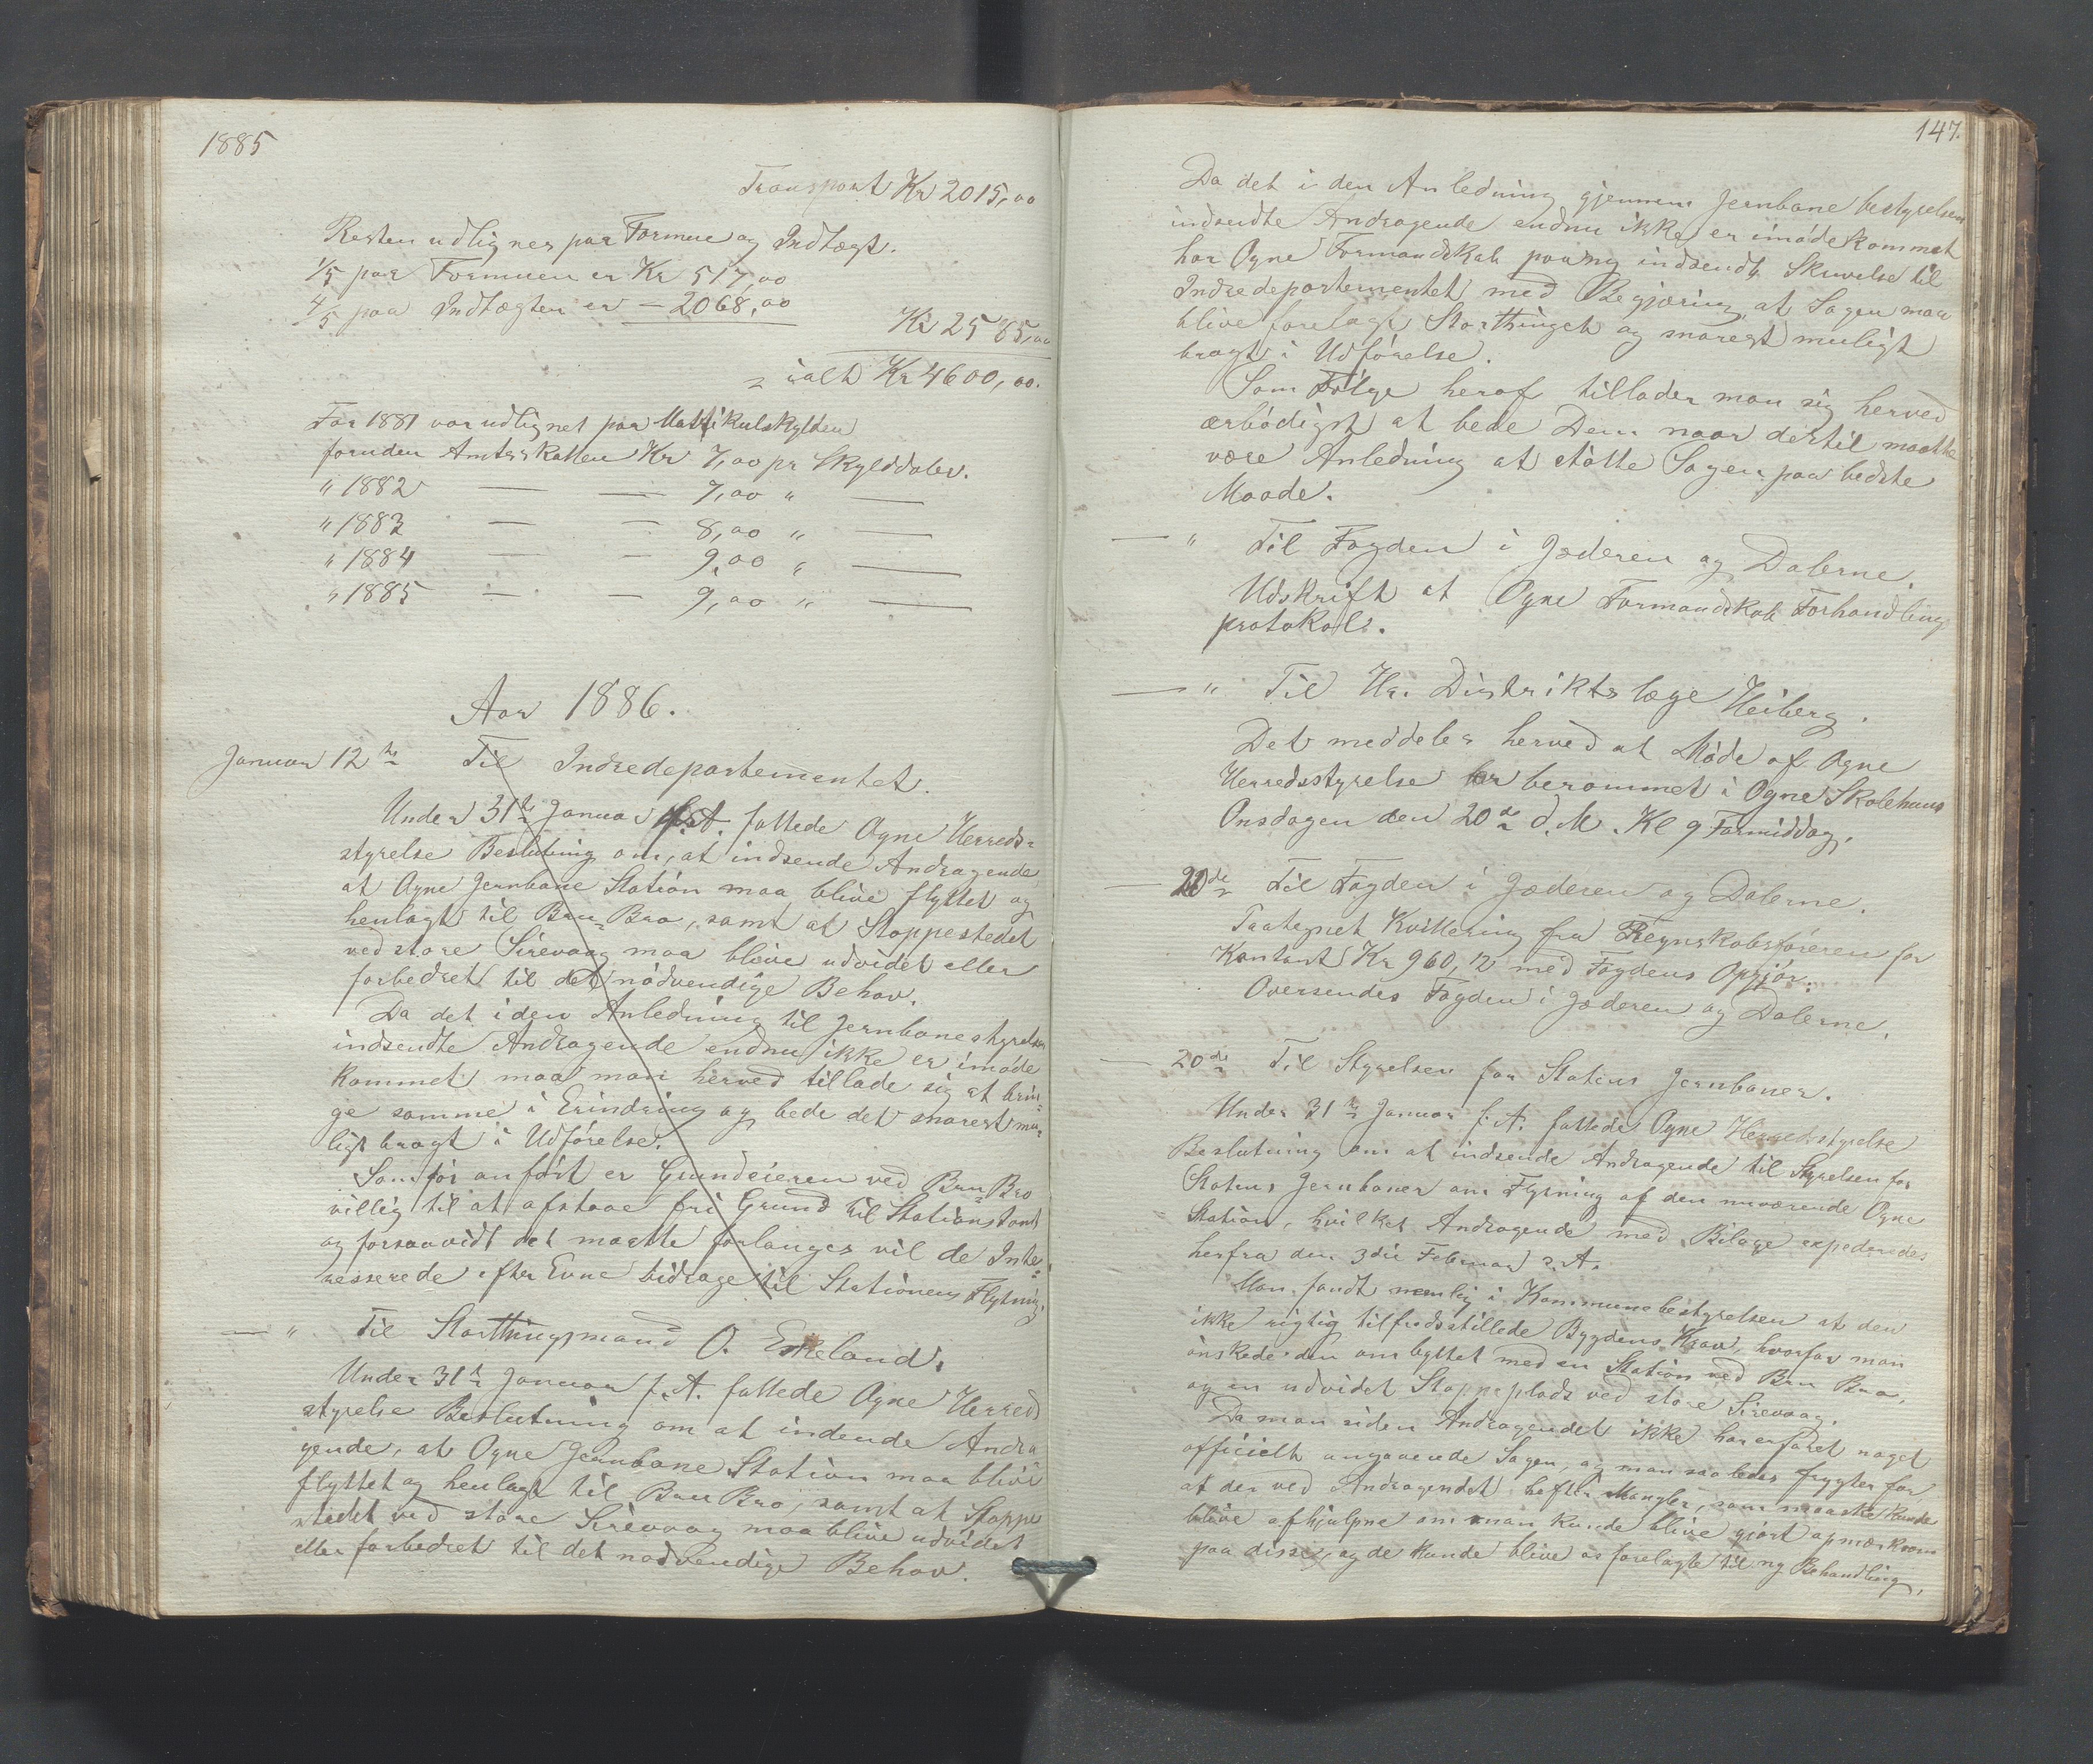 1885
Transport Kr 2015,00
Resten udlignes paa Formue og Indtægt.
1/5 paa Formuen er Kr 517,00
4/5 paa Indtægten er — 2068,00
Kr 2585,00
ialt Kr 4600,00.
For 1881 var udlignet paa Matrikulskylden
foruden Amtsskatten Kr 7,00 pr Skylddaler.
" 1882 — — 7,00 " —
" 1883 — — 8,00 " —
" 1884 — — 9,00 " —
" 1885 — — 9,00 " —
Aar 1886.
Januar 12te Til Indredepartementet.
Under 31te Januar f. A. fattede Ogne Herreds-
styrelse Beslutning om, at indsende Andragende
at Ogne Jernbane Station maa blive flyttet og
henlagt til Bru-Bro, samt at Stoppestedet
ved store Sirevaag maa blive udvidet eller
forbedret til det nødvendige Behov.
Da det i den Anledning til Jernbanestyrelsen
indsendte Andragende endnu ikke er imøde
kommet maa man herved tillade sig at brin-
ge samme i Erindring og bede det snarest mu-
ligt bragt i Udførelse.
Som før anført er Grundeieren ved Bru-Bro
villig til at afstaae fri Grund til Stationstomt
og forsaavidt det maatte forlanges vil de Inte-
resserede efter Evne bidrage til Stationens Flytning.
— " Til Storthingsmand O. Eskeland.
Under 31te Januar f. A. fattede Ogne Herreds
styrelse Beslutning om at indende Andra
gende, at Ogne Jernbane Station maa blive
flyttet og henlagt til Bru Bro, samt at Stoppe
stedet ved store Sirevaag maa blive udvidet
eller forbedret til det nødvendige Behov.
147.
Da det i den Anledning gjennem Jernbanebestyrelsen
indsendte Andragende endnu ikke er imødekommet
har Ogne Formandskab paany indsendt Skrivelse til
Indredepartementet med Begjæring, at Sagen maa
blive forelagt Storthinget og snarest muligt
bragt i Udførelse.
Som Følge heraf tillader man sig herved
ærbødigst at bede Dem naar dertil maatte
være Anledning at støtte Sagen paa bedste
Maade.
— " Til Fogden i Jæderen og Dalerne.
Udskrift at Ogne Formandskab Forhandlings
protokol.
— " Til Hr. Distriktslæge Heiberg.
Det meddeles herved at Møde af Ogne
Herredsstyrelse er berammet i Ogne Skolehuus
Onsdagen den 20de d. M. Kl 9 Formiddag.
— 20de Til Fogden i Jæderen og Dalerne.
Paategnet Kvittering fra Regnskabsføreren for
Kontant Kr 960,12 med Fogdens Opgjør.
Oversendes Fogden i Jæderen og Dalerne.
— 20de Til Styrelsen for Statens Jernbaner.
Under 31te Januar f. A. fattede Ogne Herredsstyrelse
Beslutning om at indsende Andragende til Styrelsen for
Statens Jernbaner om Flytning af den nuværende Ogne
Station, hvilket Andragende med Bilage expederedes
herfra den 3die Februar s. A.
Man fandt nemlig i Kommunebestyrelsen at den
ikke rigtig tilfredsstillede Bygdens Krav, hvorfor man
ønskede den ombyttet med en Station ved Bru Bro,
og en udvidet Stoppeplads ved store Sirevaag.
Da man siden Andragendet ikke har erfaret noget
officielt angaaende Sagen, og man saaledes frygter for
at der ved Andragendet hefter Mangler, som maaske kunde
blive afhjulpne om man kunde blive gjort opmærksom
paa disse, og de kunde blive os forelagte til ny Behandling,